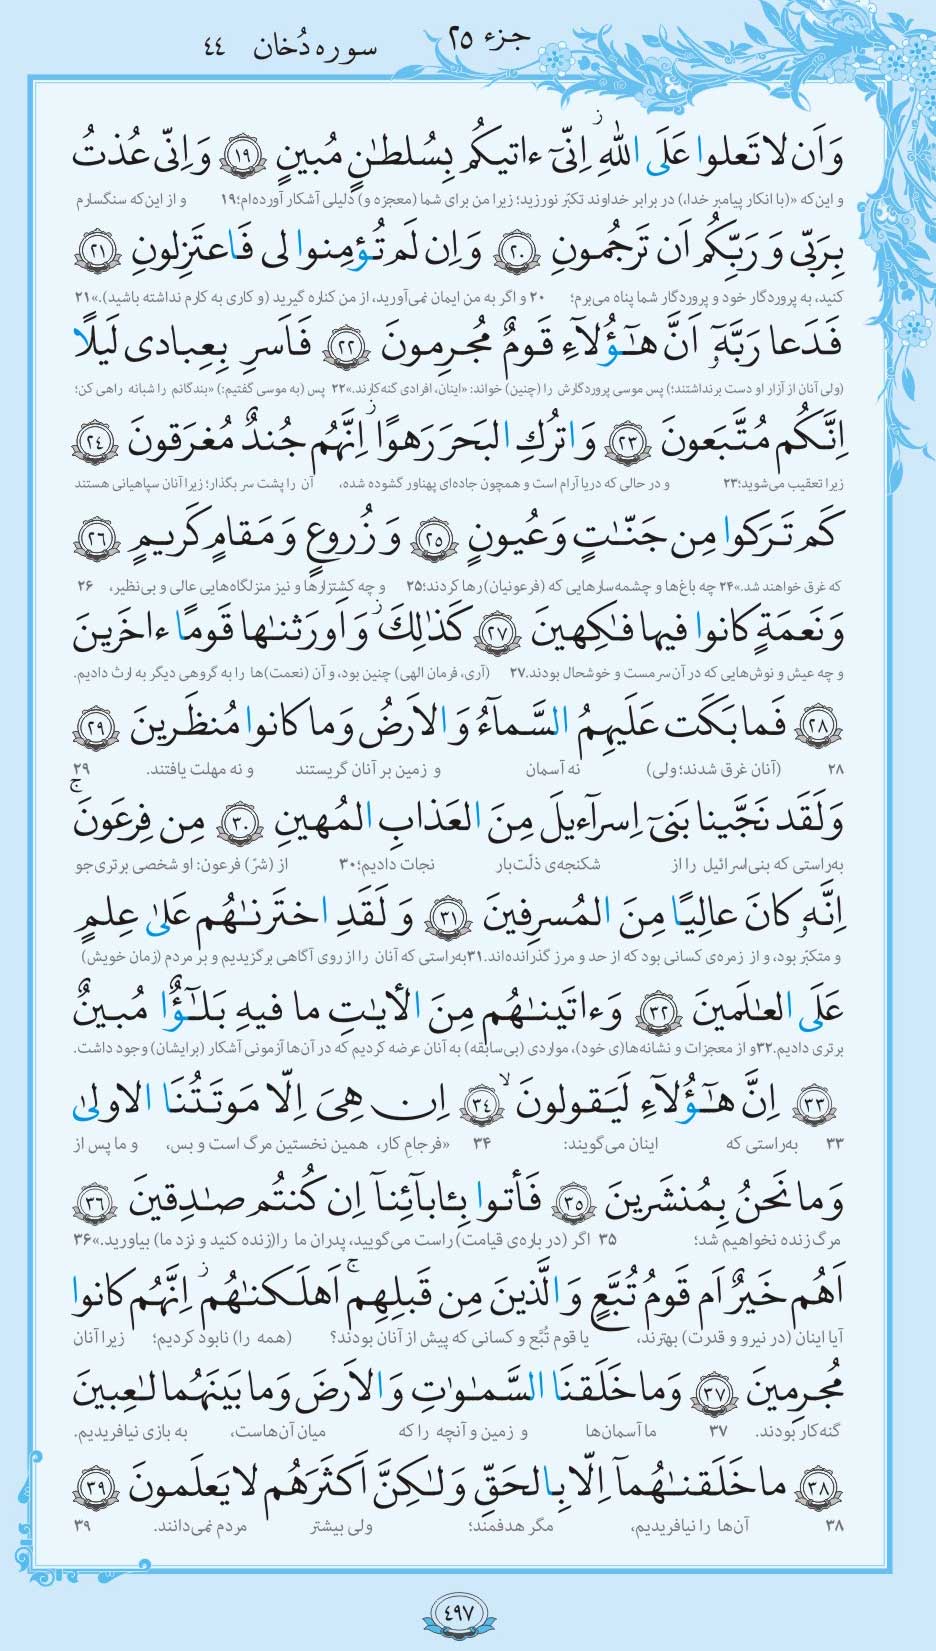 جزء ۲۵
سوره دُخان ۴۴
وَاَن لا تَعلوا عَلَى اللّٰهِ اِنّىٓ ءاتيكُم بِسُلطٰنٍ مُبينٍ ۱۹ وَ اِنّى عُذتُ
و این‌که «(با انکار پیامبر خدا،) در برابر خداوند تکبّر نورزید؛ زیرا من برای شما (معجزه و) دلیلی آشکار آورده‌ام؛۱۹ و از این‌که سنگسارم
بِرَبّى وَ رَبِّكُم اَن تَرجُمونِ ۲۰ وَ اِن لَم تُؤمِنوا لى فَاعتَزِلونِ ۲۱
کنید، به پروردگار خود و پروردگار شما پناه می‌برم؛ ۲۰ و اگر به من ایمان نمی‌آورید، از من کناره گیرید (و کاری به کارم نداشته باشید).»۲۱
فَدَعا رَبَّهٗٓ اَنَّ هٰٓؤُلآءِ قَومٌ مُجرِمونَ ۲۲ فَاَسرِ بِعِبادى لَيلًا
(ولی آنان از آزار او دست برنداشتند؛) پس موسی پروردگارش را (چنین) خواند: «اینان، افرادی گنه‌کارند.»۲۲ پس (به موسی گفتیم:) «بندگانم را شبانه راهی کن؛
اِنَّكُم مُتَّبَعونَ ۲۳ وَ اترُكِ البَحرَ رَهوًا اِنَّهُم جُندٌ مُغرَقونَ ۲۴
زیرا تعقیب می‌شوید؛۲۳ و در حالی که دریا آرام است و همچون جاده‌ای پهناور گشوده شده، آن را پشت سر بگذار؛ زیرا آنان سپاهیانی هستند
كَم تَرَكوا مِن جَنّٰتٍ وَ عُيونٍ ۲۵ وَ زُروعٍ وَ مَقامٍ كَريمٍ ۲۶
که غرق خواهند شد.»۲۴ چه باغ‌ها و چشمه‌سارهایی که (فرعونیان) رها کردند؛۲۵ و چه کشتزارها و نیز منزلگاه‌هایی عالی و بی‌نظیر، ۲۶
وَ نَعمَةٍ كانوا فيها فٰكِهينَ ۲۷ كَذٰلِكَ وَ اَورَثنٰها قَومًا ءاخَرينَ
و چه عیش و نوش‌هایی که در آن سرمست و خوشحال بودند.۲۷ (آری، فرمان الهی) چنین بود، و آن (نعمت)ها را به گروهی دیگر به ارث دادیم.
۲۸ فَما بَكَت عَلَيهِمُ السَّمآءُ وَ الاَرضُ وَ ما كانوا مُنظَرينَ ۲۹
۲۸ (آنان غرق شدند؛ ولی) نه آسمان و زمین بر آنان گریستند و نه مهلت یافتند. ۲۹
وَ لَقَد نَجَّينا بَنىٓ اِسرآءيلَ مِنَ العَذابِ المُهينِ ۳۰ مِن فِرعَونَ
به‌راستی که بنی‌اسرائیل را از شکنجه‌ی ذلّت‌بار نجات دادیم؛۳۰ از (شرّ) فرعون: او شخصی برتری‌جو
اِنَّهٗ كانَ عالِيًا مِنَ المُسرِفينَ ۳۱ وَ لَقَدِ اختَرنٰهُم عَلىٰ عِلمٍ
و متکبّر بود، و از زمره‌ی کسانی بود که از حد و مرز گذرانده‌اند.۳۱به‌راستی که آنان را از روی آگاهی برگزیدیم و بر مردم (زمان خویش)
عَلَى العٰلَمينَ ۳۲ وَ ءاتَينٰهُم مِنَ الأيٰتِ ما فيهِ بَلٰٓؤٌا مُبينٌ
برتری دادیم.۳۲و از معجزات و نشانه‌ها(ی خود)، مواردی (بی‌سابقه) به آنان عرضه کردیم که در آن‌ها آزمونی آشکار (برایشان) وجود داشت.
۳۳ اِنَّ هٰٓؤُلآءِ لَيَقولونَ ۳۴ اِن هِىَ اِلّا مَوتَتُنَا الاولىٰ
۳۳ به‌راستی که اینان می‌گویند: ۳۴ «فرجامِ کار، همین نخستین مرگ است و بس، و ما پس از
وَ ما نَحنُ بِمُنشَرينَ ۳۵ فَأتوا بِـٔابآئِنآ اِن كُنتُم صٰدِقينَ ۳۶
مرگ زنده نخواهیم شد؛ ۳۵ اگر (در باره‌ی قیامت) راست می‌گویید، پدران ما را(زنده کنید و نزد ما) بیاورید.»۳۶
اَهُم خَيرٌ اَم قَومُ تُبَّعٍ وَ الَّذينَ مِن قَبلِهِم اَهلَكنٰهُم اِنَّهُم كانوا
آیا اینان (در نیرو و قدرت) بهترند، یا قوم تُبَّع و کسانی که پیش از آنان بودند؟ (همه را) نابود کردیم؛ زیرا آنان
مُجرِمينَ ۳۷ وَ ما خَلَقنَا السَّمٰوٰتِ وَ الاَرضَ وَ ما بَينَهُما لٰعِبينَ
گنه‌کار بودند. ۳۷ ما آسمان‌ها و زمین و آنچه را که میان آن‌هاست، به بازی نیافریدیم.
۳۸ ما خَلَقنٰهُمآ اِلّا بِالحَقِّ وَ لٰكِنَّ اَكثَرَهُم لا يَعلَمونَ ۳۹
۳۸ آن‌ها را نیافریدیم، مگر هدفمند؛ ولی بیشتر مردم نمی‌دانند. ۳۹
۴۹۷